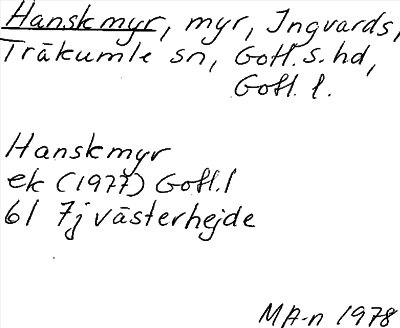 Hanskmyr, myr, Ingvards,
Träkumle sn, Gotl. s. hd,
Gotl. l.
Hanskmyr
ek (1977) Gotl. l
6I 7j västerhejde
MA-n 1978